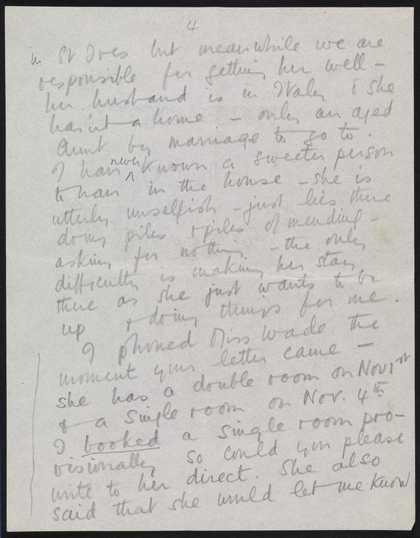 4
in St Ives but meanwhile we are
responsible for getting her well –
her husband is in Italy & she
hasn't a home – only an aged
Aunt by marriage to go to.
I have never known a sweeter person
to have in the house – she is
utterly unselfish – just lies there
doing piles & piles of mending –
asking for nothing – the only
difficulty is making her stay
there as she just wants to be
up & doing things for me.
I phoned Miss Wade the
moment your letter came –
she has a double room on Nov 1st
& a single room on Nov. 4th
I booked a single room pro-
visionally so could you please
write to her direct. She also
said that she would let me know